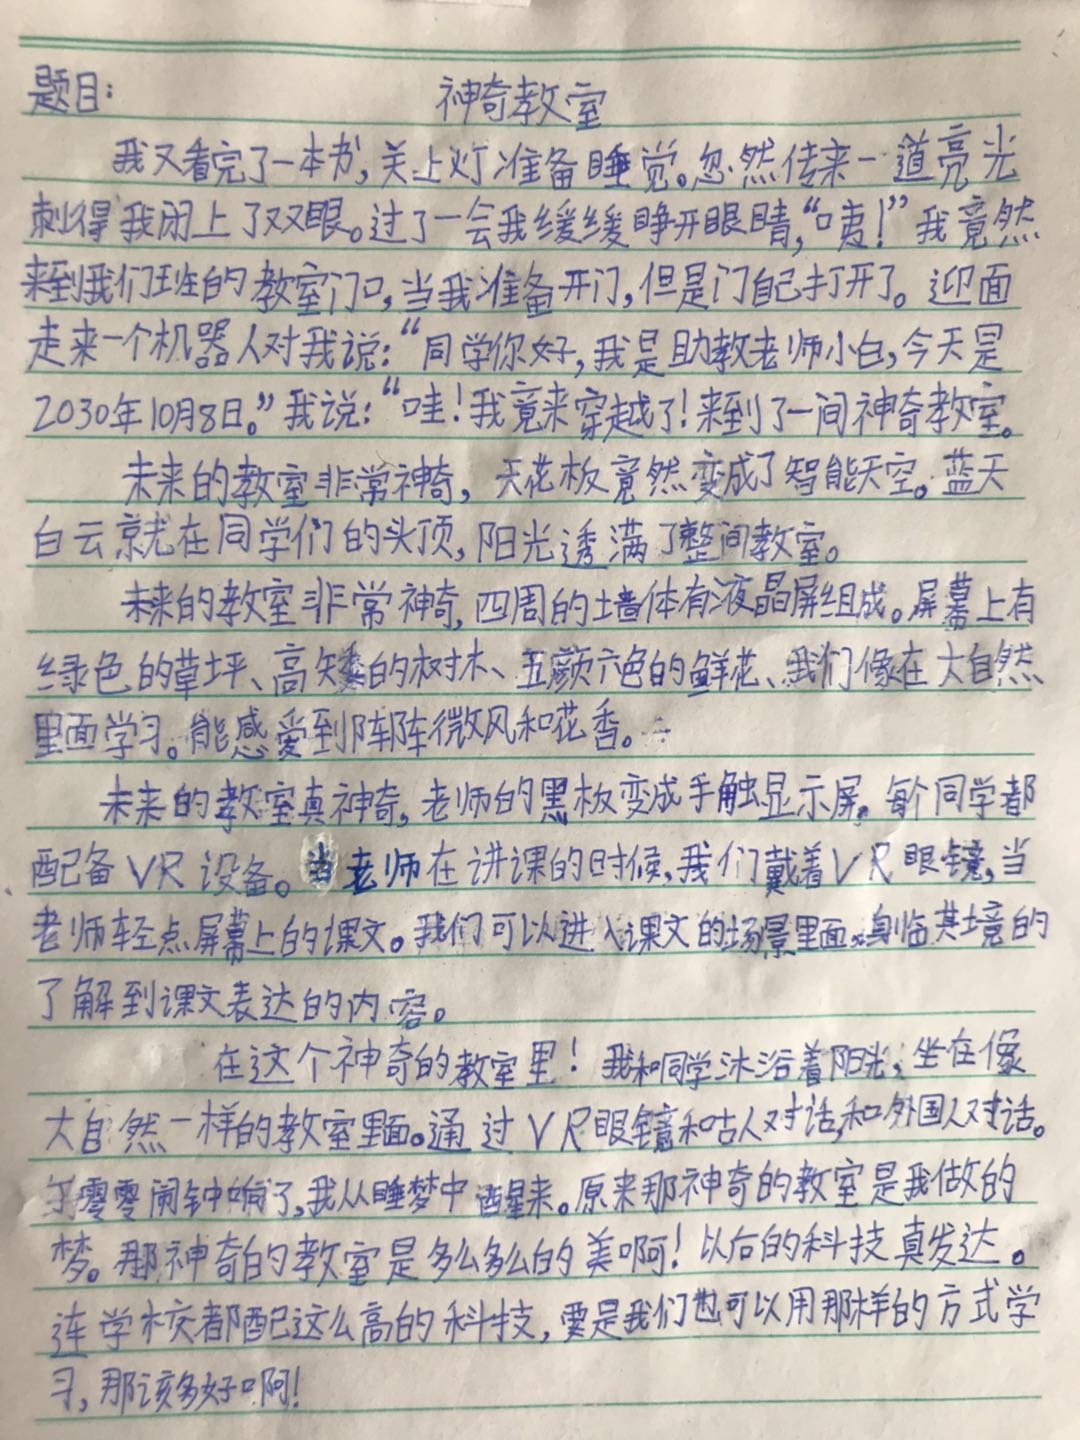 题目： 神奇教室
我又看完了一本书，关上灯准备睡觉。忽然传来一道亮光
刺得我闭上了双眼。过了一会我缓缓睁开眼睛，“咦！”我竟然
来到我们班的教室门口，当我准备开门，但是门自己打开了。迎面
走来一个机器人对我说：“同学你好，我是助教老师小白，今天是
2030年10月8日。”我说：“哇！我竟来穿越了！来到了一间神奇教室。
未来的教室非常神奇，天花板竟然变成了智能天空。蓝天
白云就在同学们的头顶，阳光透满了整间教室。
未来的教室非常神奇，四周的墙体有液晶屏组成。屏幕上有
绿色的草坪、高矮的树木、五颜六色的鲜花、我们像在大自然
里面学习。能感受到阵阵微风和花香。
未来的教室真神奇，老师的黑板变成手触显示屏。每个同学都
配备VR设备。当老师在讲课的时候，我们戴着VR眼镜，当
老师轻点屏幕上的课文。我们可以进入课文的场景里面。身临其境的
了解到课文表达的内容。
在这个神奇的教室里！我和同学沐浴着阳光，坐在像
大自然一样的教室里面。通过VR眼镜和古人对话，和外国人对话。
零零闹钟响了，我从睡梦中醒来。原来那神奇的教室是我做的
梦。那神奇的教室是多么多么的美啊！以后的科技真发达。
连学校都配这么高的科技，要是我们也可以用那样的方式学
习，那该多好啊！